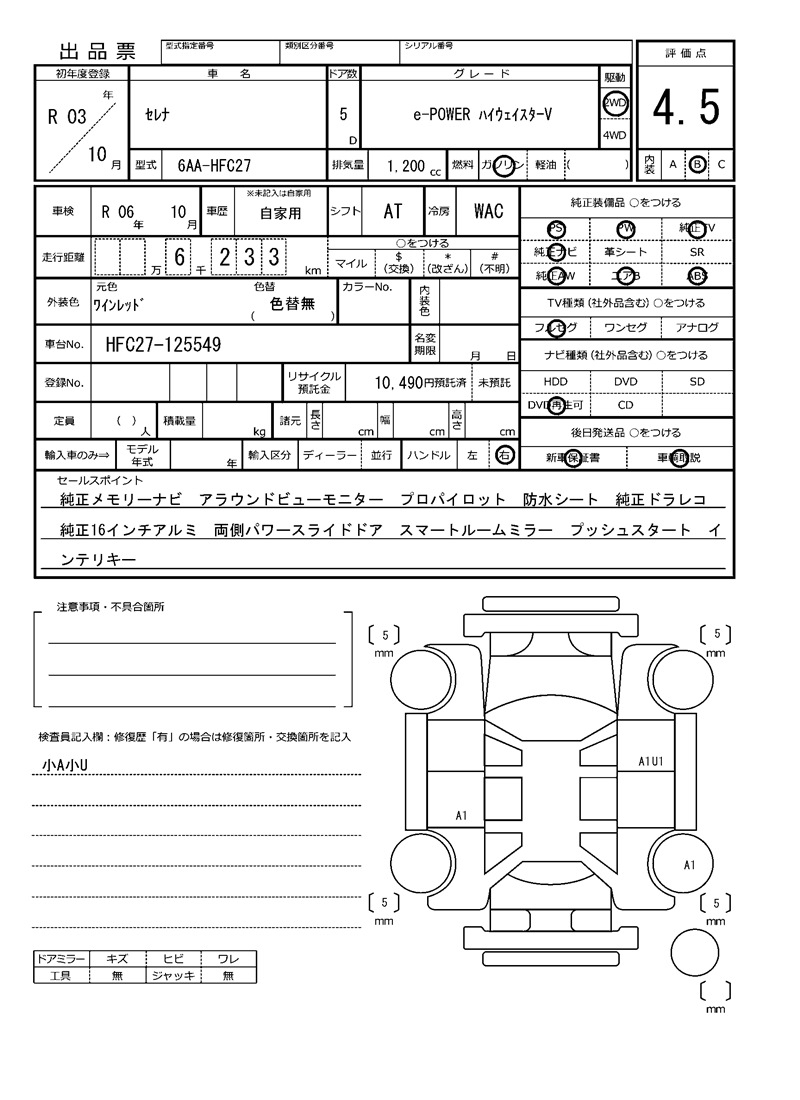 出品票
型式指定番号 類別区分番号 シリアル番号
初年度登録 車名 ドア数 グレード 駆動 評価点
R 03 年 10 月 セレナ 5 D e-POWER ハイウェイスターV 2WD 4WD 4.5
型式 6AA-HFC27 排気量 1,200 cc 燃料 ガソリン 軽油 ( ) 内装 A B C
車検 R 06 年 10 月 車歴 ※未記入は自家用 自家用 シフト AT 冷房 WAC
純正装備品 ○をつける
PS PW 純正TV
純正ナビ 革シート SR
純正AW エアB ABS
走行距離 万 6 千 2 3 3 km ○をつける
マイル $(交換) *(改ざん) #(不明)
外装色 元色 ワインレッド 色替 色替無 ( ) カラーNo. 内装色
TV種類(社外品含む)○をつける
フルセグ ワンセグ アナログ
車台No. HFC27-125549 名変期限 月 日
ナビ種類(社外品含む)○をつける
HDD DVD SD
DVD再生可 CD
登録No. リサイクル預託金 10,490円預託済 未預託
定員 ( ) 人 積載量 kg 諸元 長さ cm 幅 cm 高さ cm
後日発送品 ○をつける
新車保証書 車輌取説
輸入車のみ⇒ モデル年式 年 輸入区分 ディーラー 並行 ハンドル 左 右
セールスポイント
純正メモリーナビ アラウンドビューモニター プロパイロット 防水シート 純正ドラレコ
純正16インチアルミ 両側パワースライドドア スマートルームミラー プッシュスタート イ
ンテリキー
注意事項・不具合箇所
検査員記入欄：修復歴「有」の場合は修復箇所・交換箇所を記入
小A小U
ドアミラー キズ ヒビ ワレ
工具 無 ジャッキ 無
[5] mm
[5] mm
A1U1
A1
A1
[5] mm
[5] mm
[ ] mm